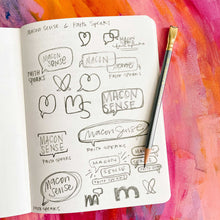 MACON SENSE & FAITH SPEAKS
MACON
SENSE
FAITH
SPEAKS
MACON
SENSE
FAITH SPEAKS
MS
MACON
SENSE
FAITH SPEAKS
MACON
SENSE
FAITH SPEAKS
MaconSense
FAITH SPEAKS
MACON
SENSE
FAITH SPEAKS
MACON
SENSE
FAITH SPEAKS
m
m